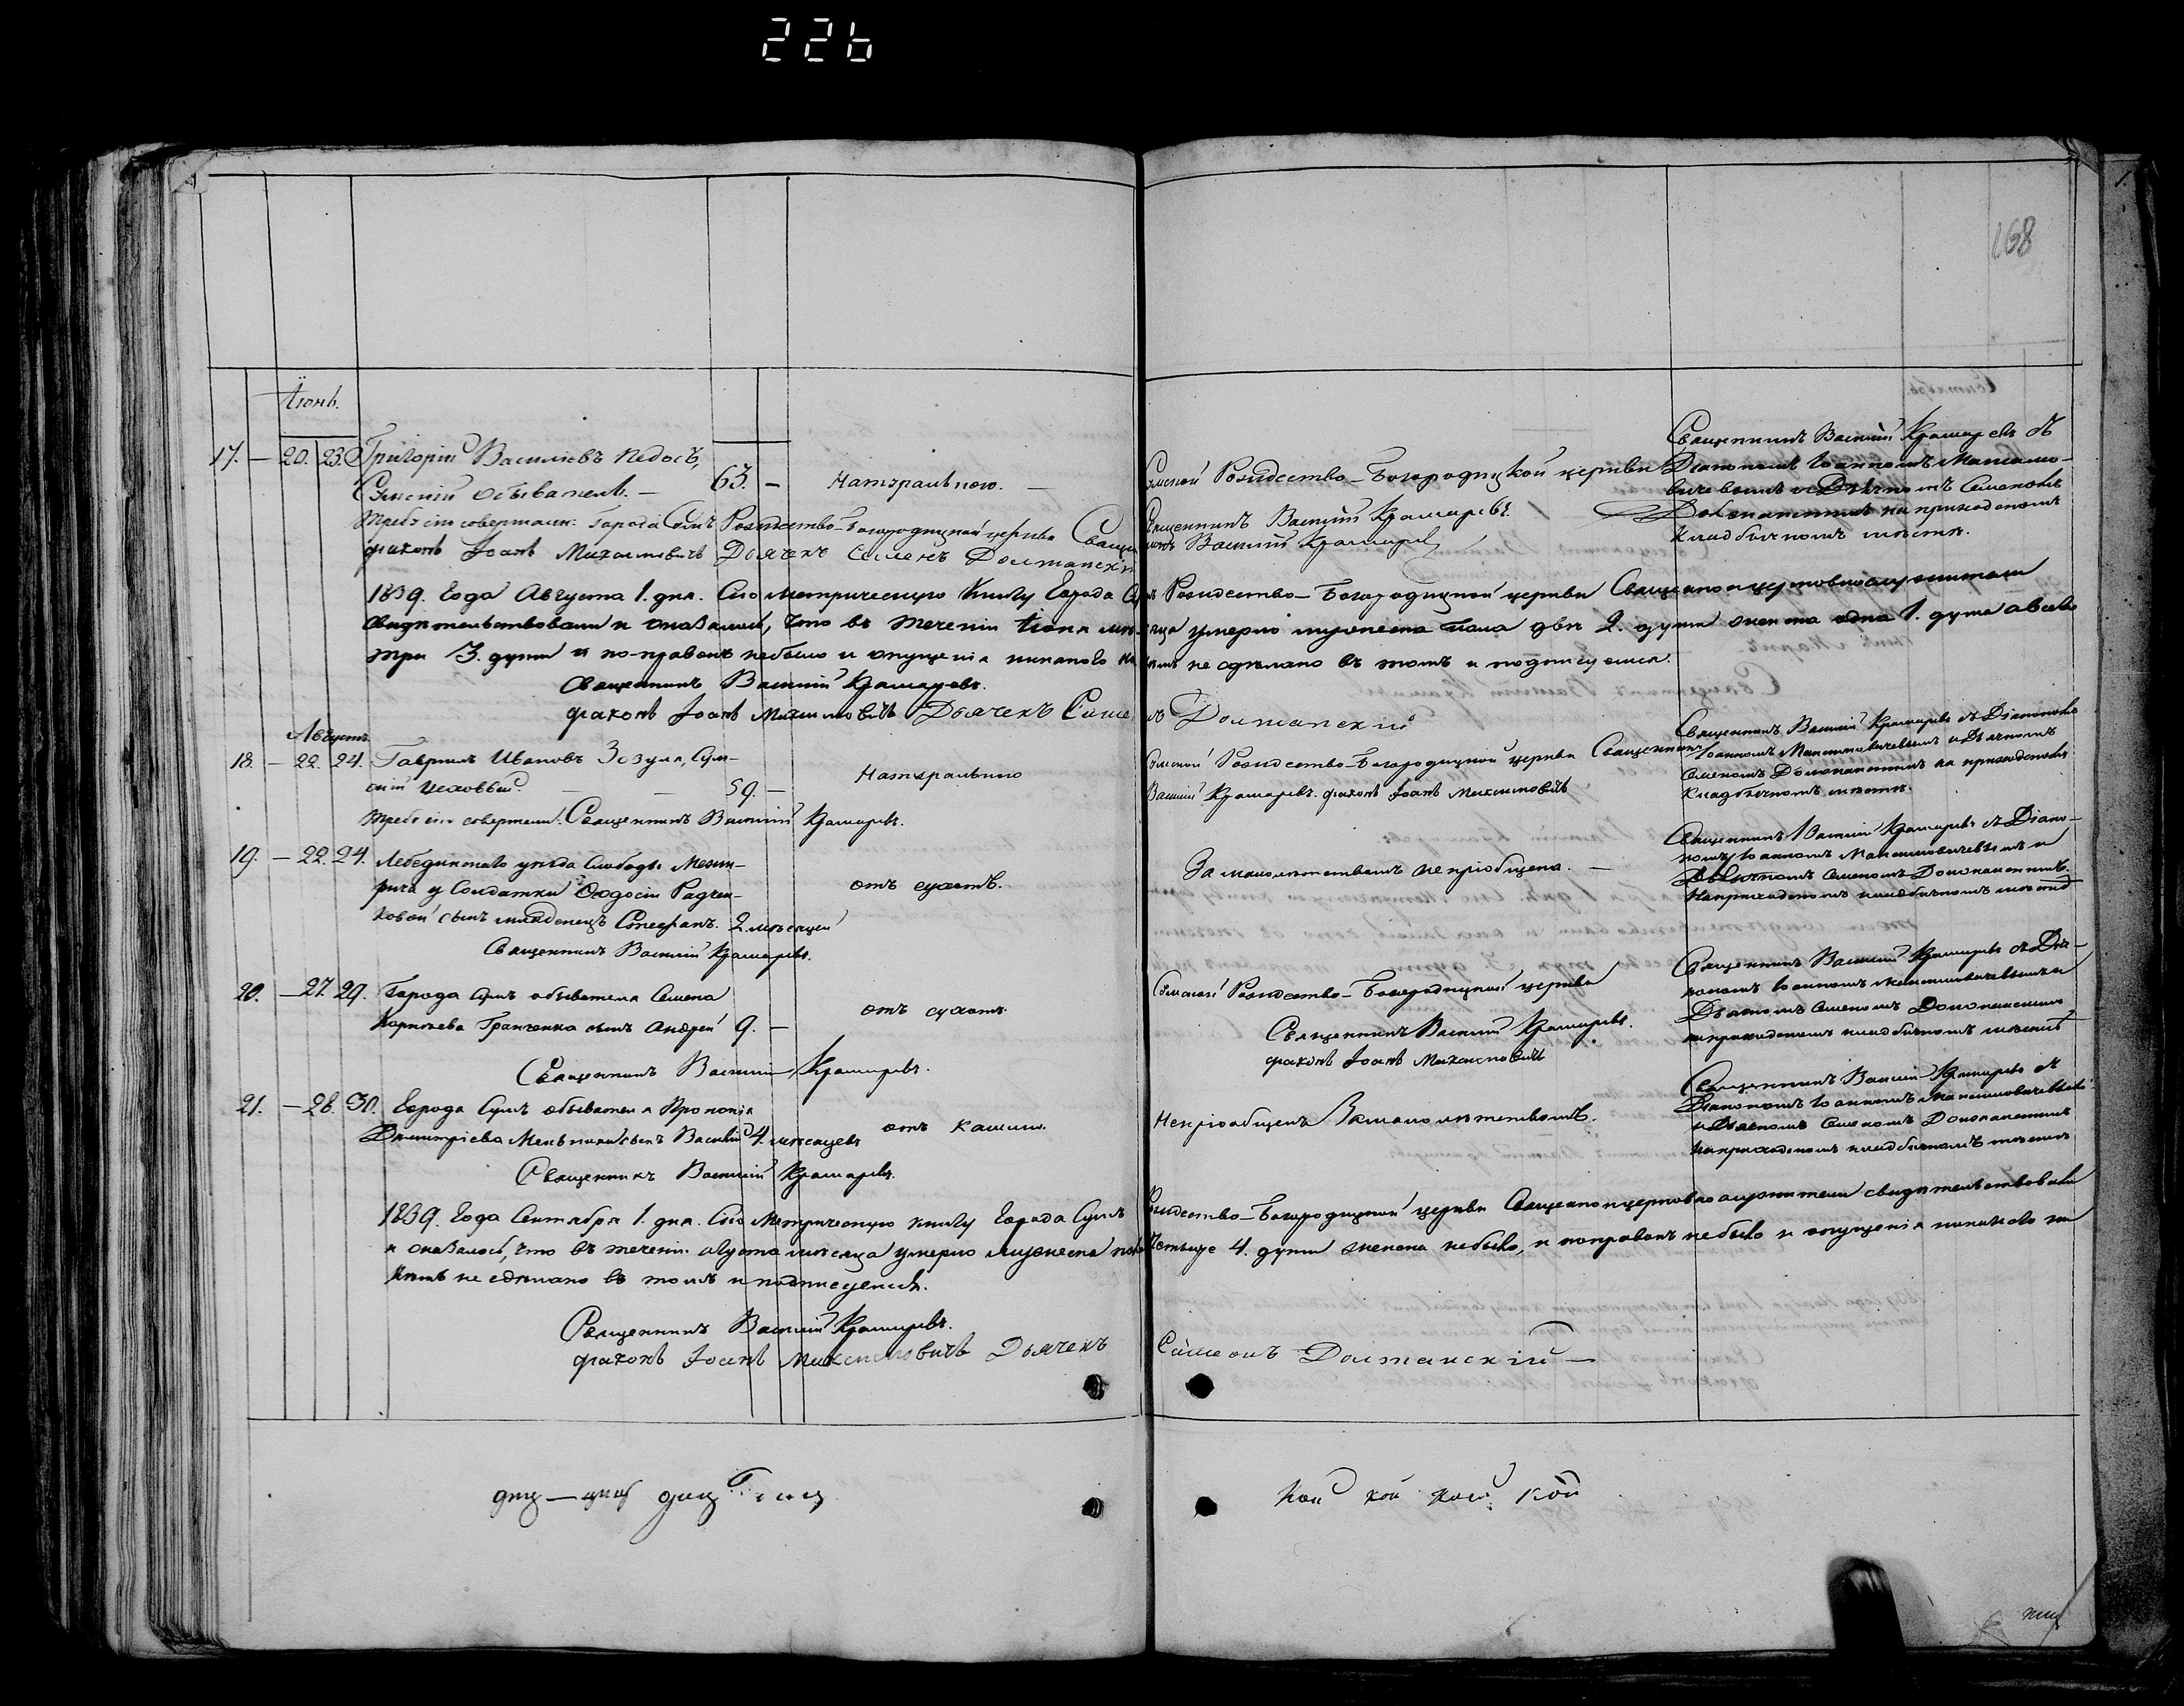 226
168
Іюнь.
17. — 20. 23. Григорій Васильевъ Недосъ,
Сумскій обыватель. — 63. — Натуральною. —
Сумской Рождество-Богородицкой церкви
Священникъ Василій Крамаревъ.
Священникъ Василій Крамаревъ съ
Діакономъ Іоанномъ Максимо-
вичевымъ и Дьячкомъ Семеномъ
на приходскомъ
кладбищномъ мѣстѣ.
Требу сію совершали: Города Сумъ Рождество-Богородицкой церкви Священникъ Василій Крамаревъ
діаконъ Іоанъ Махсимовичъ Дьячекъ Семенъ
1839. Года Августа 1. дня. Сію метрическую Книгу Города Сумъ Рождество-Богородицкой церкви Священноицерковнослужители
свидѣтельствовали и оказалось, что въ теченіи Іюня мѣсяца умерло мужеска пола двѣ 2. души женска одна 1. душа а всего
три 3. души и по-правокъ небыло и опущенія никакого нами не сдѣлано въ томъ и подписуемся.
Священникъ Василій Крамаревъ.
діаконъ Іоанъ Махсимовичъ Дьячекъ
Августъ
18. — 22. 24. Гавріилъ Ивановъ Зозуля, Сум-
скій Цеховый. — — 59. — Натурально
Сумской Рождество-Богородицкой церкви Священникъ
Василій Крамаревъ. діаконъ Іоанъ Махсимовичъ
Священникъ Василій Крамаревъ съ Діакономъ
Іоанномъ Максимовичевымъ и Дьячкомъ
Семеномъ на приходскомъ
кладбищномъ мѣстѣ.
Требу сію совершалъ: Священникъ Василій Крамаревъ.
19. — 22. 24. Лебединскаго уѣзда Слободы Межи-
рича у Солдатки Ѳеодосіи Радчен-
ковой сынъ младенецъ Стефанъ. 2. мѣсяцей
отъ сухотъ.
За малолѣтствомъ непріобщенъ. —
Священникъ Василій Крамаревъ съ Діако-
номъ Іоанномъ Максимовичевымъ и
Дьячкомъ Семеномъ
на приходскомъ кладбищномъ мѣстѣ
Священникъ Василій Крамаревъ.
20. — 27. 29. Города Сумъ обывателя Семена
Корнѣева Гранченка сынъ Андрей 9. —
отъ сухотъ.
Сумской Рождество-Богородицкой церкви
Священникъ Василій Крамаревъ.
діаконъ Іоанъ Махсимовичъ
Священникъ Василій Крамаревъ съ Діа-
кономъ Іоанномъ Максимовичевымъ и
Дьячкомъ Семеномъ
на приходскомъ кладбищномъ мѣстѣ
Священникъ Василій Крамаревъ.
21. — 28. 30. Города Сумъ обывателя Прокопія
Дмитріева Мельника сынъ Василій 4. мѣсяцевъ
отъ кашлю.
Непріобщенъ За малолѣтствомъ.
Священникъ Василій Крамаревъ съ
Діакономъ Іоанномъ Максимовичевымъ
и Дьячкомъ Семеномъ
на приходскомъ кладбищномъ мѣстѣ
Священникъ Василій Крамаревъ.
1839. Года Сентября 1. дня. Сію Метрическую книгу Города Сумъ Рождество-Богородицкой церкви Священноицерковнослужители свидѣтельствовали
и оказалось, что въ теченіи августа мѣсяца умерло мужеска пола четыре 4. души женска небыло, и поправокъ небыло и опущенія никакого на
ми не сдѣлано въ томъ и подписуемся.
Священникъ Василій Крамаревъ.
діаконъ Іоанъ Максимовичъ Дьячекъ
кой кой кой кой